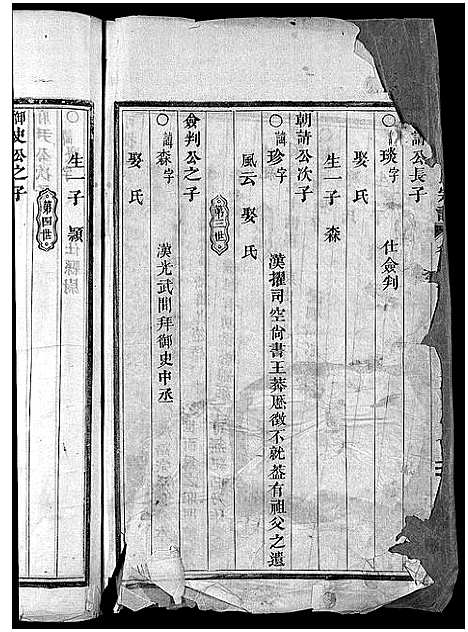 請公長子
○諱琰字 仕僉判
娶氏
生一子森
朝請公次子
○諱珍字 漢擢司空尙書王莽歷徵不就葢有祖父之遺
風云 娶氏
第三世
僉判公之子
○諱森字 漢光武間拜御史中丞
娶氏
生一子顥
第四世
御史公之子